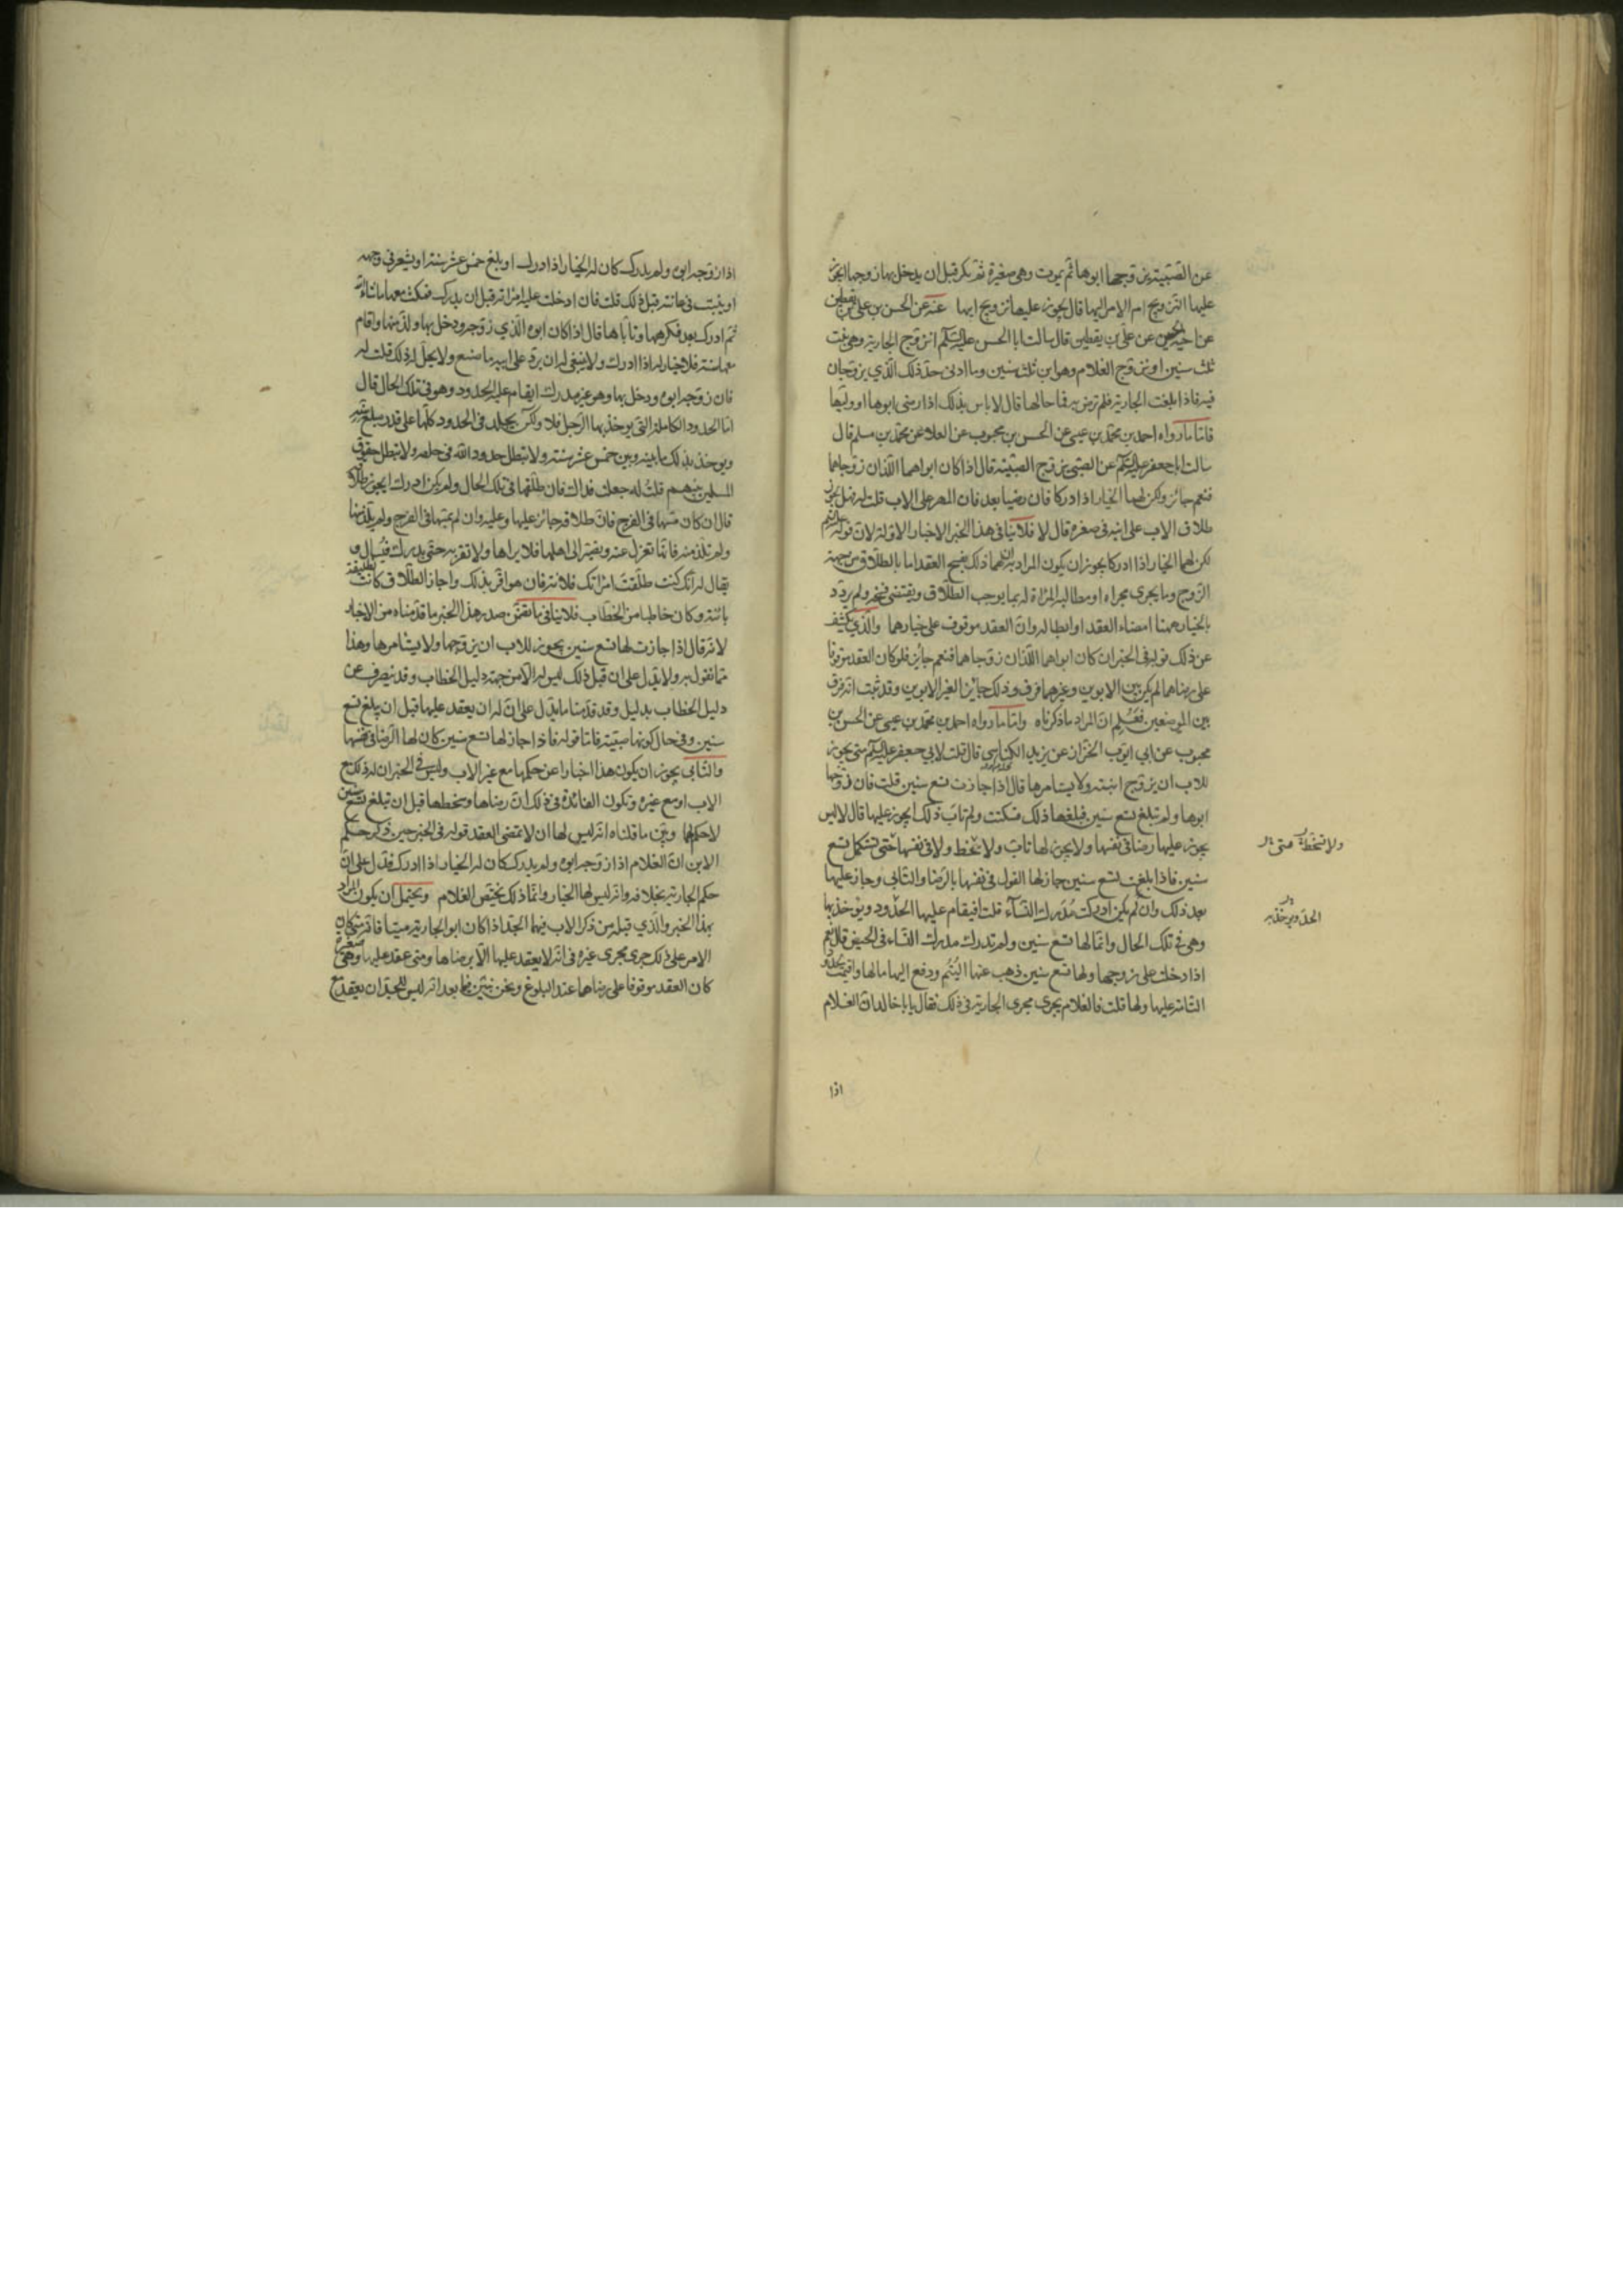 عن الصبية يزوجها ابوها ثم يموت وهي صغيرة ثم تكبر قبل ان يدخل بها زوجها ايجوز
عليها التزويج ام الامر اليها قال يجوز عليها تزويج ابيها عنه عن الحسن بن علي بن يقطين
عن اخيه الحسين عن علي بن يقطين قال سالت ابا الحسن عليه السلم اتزوج الجارية وهي بنت
ثلث سنين او يزوج الغلام وهو ابن ثلث سنين وما ادنى حد ذلك الذي يزوجان
فيه فاذا بلغت الجارية فلم ترض به فما حالها قال لا باس بذلك اذا رضي ابوها او وليها
فاما ما رواه احمد بن محمد بن عيسى عن الحسن بن محبوب عن العلا عن محمد بن مسلم قال
سالت ابا جعفر عليه السلم عن الصبي يزوج الصبية قال اذا كان ابواهما اللذان زوجاهما
فنعم جائز ولكن لهما الخيار اذا ادركا فان رضيا بعد فان المهر على الاب قلت له فهل يجوز
طلاق الاب على ابنه في صغره قال لا فلا ينافي هذا الخبر الاخبار الاولة لان قوله عليه السلم
لكن لهما الخيار اذا ادركا يجوز ان يكون المراد به ان لهما ذلك بفسخ العقد اما بالطلاق من جهة
الزوج وما يجري مجراه او مطالبة المراة له بما يوجب الطلاق ويقتضي فسخه ولم يرد د
بالخيار ههنا امضاء العقد او ابطاله وان العقد موقوف على خيارهما والذي يكشف
عن ذلك قوله في الخبر ان كان ابواهما اللذان زوجاهما فنعم جائز فلو كان العقد موقوفا
على رضاهما لم يكن بين الابوين وغيرهما فرق وذلك جائز لغير الابوين وقد ثبت انه فرق
بين الموضعين فعلم ان المراد ما ذكرناه واما ما رواه احمد بن محمد بن عيسى عن الحسن بن
محبوب عن ابي ايوب الخزاز عن يزيد الكناسي قال قلت لابي جعفر عليه السلم متى يجوز
للاب ان يزوج ابنته ولا يستامرها قال اذا جازت تسع سنين قلت فان زوجها
ابوها ولم تبلغ تسع سنين فبلغها ذلك فسكتت ولم تاب ذلك ايجوز عليها قال لا ليس
يجوز عليها رضا في نفسها ولا يجوز لها تاب ولا سخط ولا في نفسها حتى تستكمل تسع
سنين فاذا بلغت تسع سنين جاز لها القول في نفسها بالرضا والتابي وجاز عليها
بعد ذلك وان لم يكن ادركت مدرك النساء قلت افيقام عليها الحدود ويؤخذ بها
وهي في تلك الحال وانما لها تسع سنين ولم تدرك مدرك النساء في الحيض قال نعم
اذا دخلت على زوجها ولها تسع سنين ذهب عنها اليتم ودفع اليها مالها واقيمت الحدود
التامة عليها ولها قلت فالغلام يجري مجرى الجارية في ذلك فقال يا ابا خالد ان الغلام
ولا تسخط
متى
الحد ويؤخذ به
اذا
اذا زوجه ابوه ولم يدرك كان له الخيار اذا ادرك او بلغ خمس عشر سنة او يشعر في وجهه
او ينبت في عانته قبل ذلك قلت فان ادخلت عليه امراته قبل ان يدرك فمكث معها ما شاء الله
ثم ادرك بعد فكرهها وتاباها قال اذا كان ابوه الذي زوجه ودخل بها ولذ منها واقام
معها سنة فلا خيار له اذا ادرك ولا ينبغي له ان يرد على ابيه ما صنع ولا يحل له ذلك قلت له
فان زوجه ابوه ودخل بها وهو غير مدرك ايقام عليه الحدود وهو في تلك الحال قال
اما الحدود الكاملة التي يوخذ بها الرجل فلا ولكن يجلد في الحدود كلها على قدر مبلغ سنه
ويوخذ بذلك ما بينه وبين خمس عشر سنة ولا تبطل حدود الله في خلقه ولا تبطل حقوق
المسلمين بينهم قلت له جعلت فداك فان طلقها في تلك الحال ولم يكن ادرك ايجوز طلاقه
قال ان كان مسها في الفرج فان طلاقه جائز عليها وعليه وان لم يمسها في الفرج ولم يلذ منها
ولم تلذ منه فانها تعزل عنه وتصير الى اهلها فلا يراها ولا تقربه حتى يدرك فيسال و
يقال له انك كنت طلقت امراتك فلانة فان هو اقر بذلك واجاز الطلاق كانت تطليقة
بائنة وكان خاطبا من الخطاب فلا ينافي ما تضمن صدر هذا الخبر ما قدمناه من الاخبار
لانه قال اذا جازت لها تسع سنين يجوز للاب ان يزوجها ولا يستامرها وهذا
مما نقول به ولا يدل على ان قبل ذلك ليس له الا من جهة دليل الخطاب وقد ينصرف عن
دليل الخطاب بدليل وقد قدمنا ما يدل على ان له ان يعقد عليها قبل ان يبلغ تسع
سنين وفي حال كونها صبية فاما قوله فاذا جاز لها تسع سنين كان لها الرضا في نفسها
والتابي يجوز ان يكون هذا اخبارا عن حكمها مع غير الاب وليس في الخبر ان له ذلك مع
الاب او مع غيره وتكون الفائدة في ذلك ان رضاها وسخطها قبل ان تبلغ تسع سنين
لا حكم لها ويبين ما قلناه انه ليس لها ان لا تمضي العقد قوله في الخبر حين ذكر حكم
الابن ان الغلام اذا زوجه ابوه ولم يدرك كان له الخيار اذا ادرك فدل على ان
حكم الجارية بخلافه وانه ليس لها الخيار وانما ذلك يختص الغلام ويحتمل ان يكون المراد
بهذا الخبر والذي قبله من ذكر الاب فيهما الجد اذا كان ابو الجارية ميتا فانه متى كان
الامر على ذلك جرى مجرى غيره في انه لا يعقد عليها الا برضاها ومتى عقد عليها وهي صغيرة
كان العقد موقوفا على رضاها عند البلوغ ونحن نبين فيما بعد انه ليس للجد ان يعقد مع